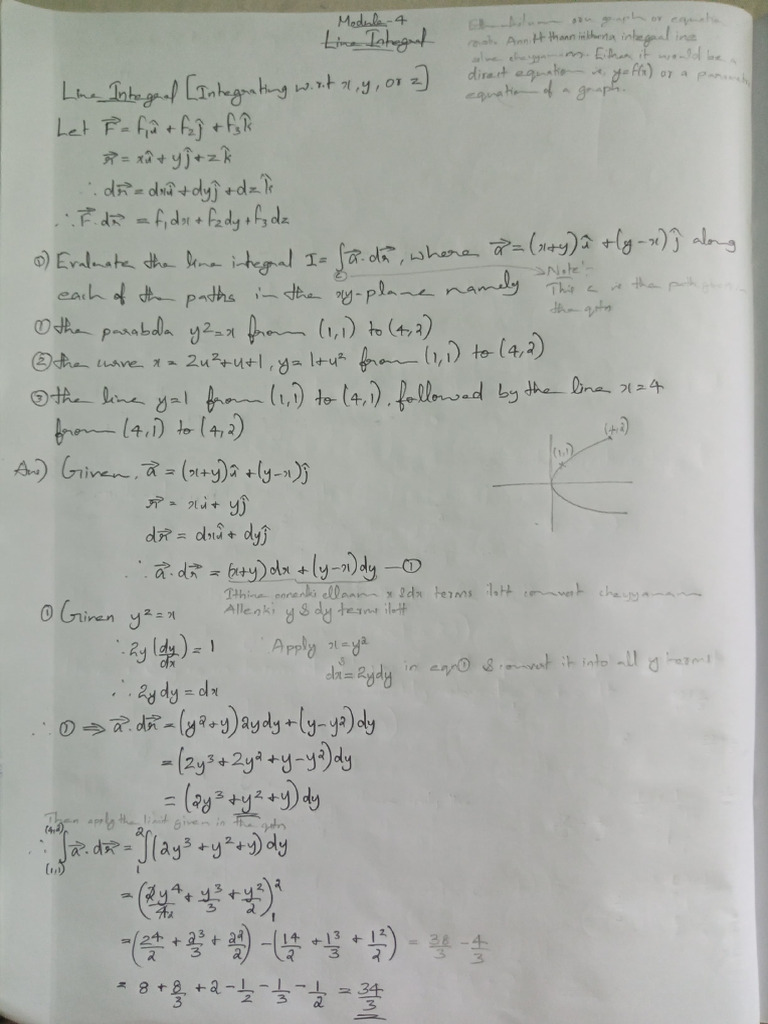 Module-4
Line Integral
direct equation ie, y=f(x) or a
equation of a graph.
Line Integral [Integrating w.r.t x, y, or z]
Let F⃗ = f₁î + f₂ĵ + f₃k̂
r⃗ = xî + yĵ + zk̂
∴ dr⃗ = dxî + dyĵ + dzk̂
∴ F⃗.dr⃗ = f₁dx + f₂dy + f₃dz
Q) Evaluate the line integral I = ∫_c a⃗.dr⃗, where a⃗ = (x+y)î + (y-x)ĵ along
each of the paths in the xy-plane namely
Note:-
This c is the path
the qstn
① the parabola y²=x from (1,1) to (4,2)
② the curve x = 2u²+u+1, y = 1+u² from (1,1) to (4,2)
③ the line y=1 from (1,1) to (4,1), followed by the line x=4
from (4,1) to (4,2)
(1,1) (4,2)
Ans) Given, a⃗ = (x+y)î + (y-x)ĵ
r⃗ = xî + yĵ
dr⃗ = dxî + dyĵ
∴ a⃗.dr⃗ = (x+y)dx + (y-x)dy —①
Ithine onnenki ellaam x & dx terms ilott convert cheyyanam
Allenki y & dy terms ilott
① Given y² = x
∴ 2y(dy/dx) = 1
Apply x = y²
& dx = 2ydy in eqn① & convert it into all y terms
∴ 2ydy = dx
∴ ① ⇒ a⃗.dr⃗ = (y²+y)2ydy + (y-y²)dy
= (2y³+2y²+y-y²)dy
= (2y³+y²+y)dy
Then apply the limit given in the qstn
∴ ∫_(1,1)^(4,2) a⃗.dr⃗ = ∫_1^2 (2y³+y²+y)dy
= (2y⁴/4₂ + y³/3 + y²/2)_1^2
= (2⁴/2 + 2³/3 + 2²/2) - (1⁴/2 + 1³/3 + 1²/2) = 38/3 - 4/3
= 8 + 8/3 + 2 - 1/2 - 1/3 - 1/2 = 34/3